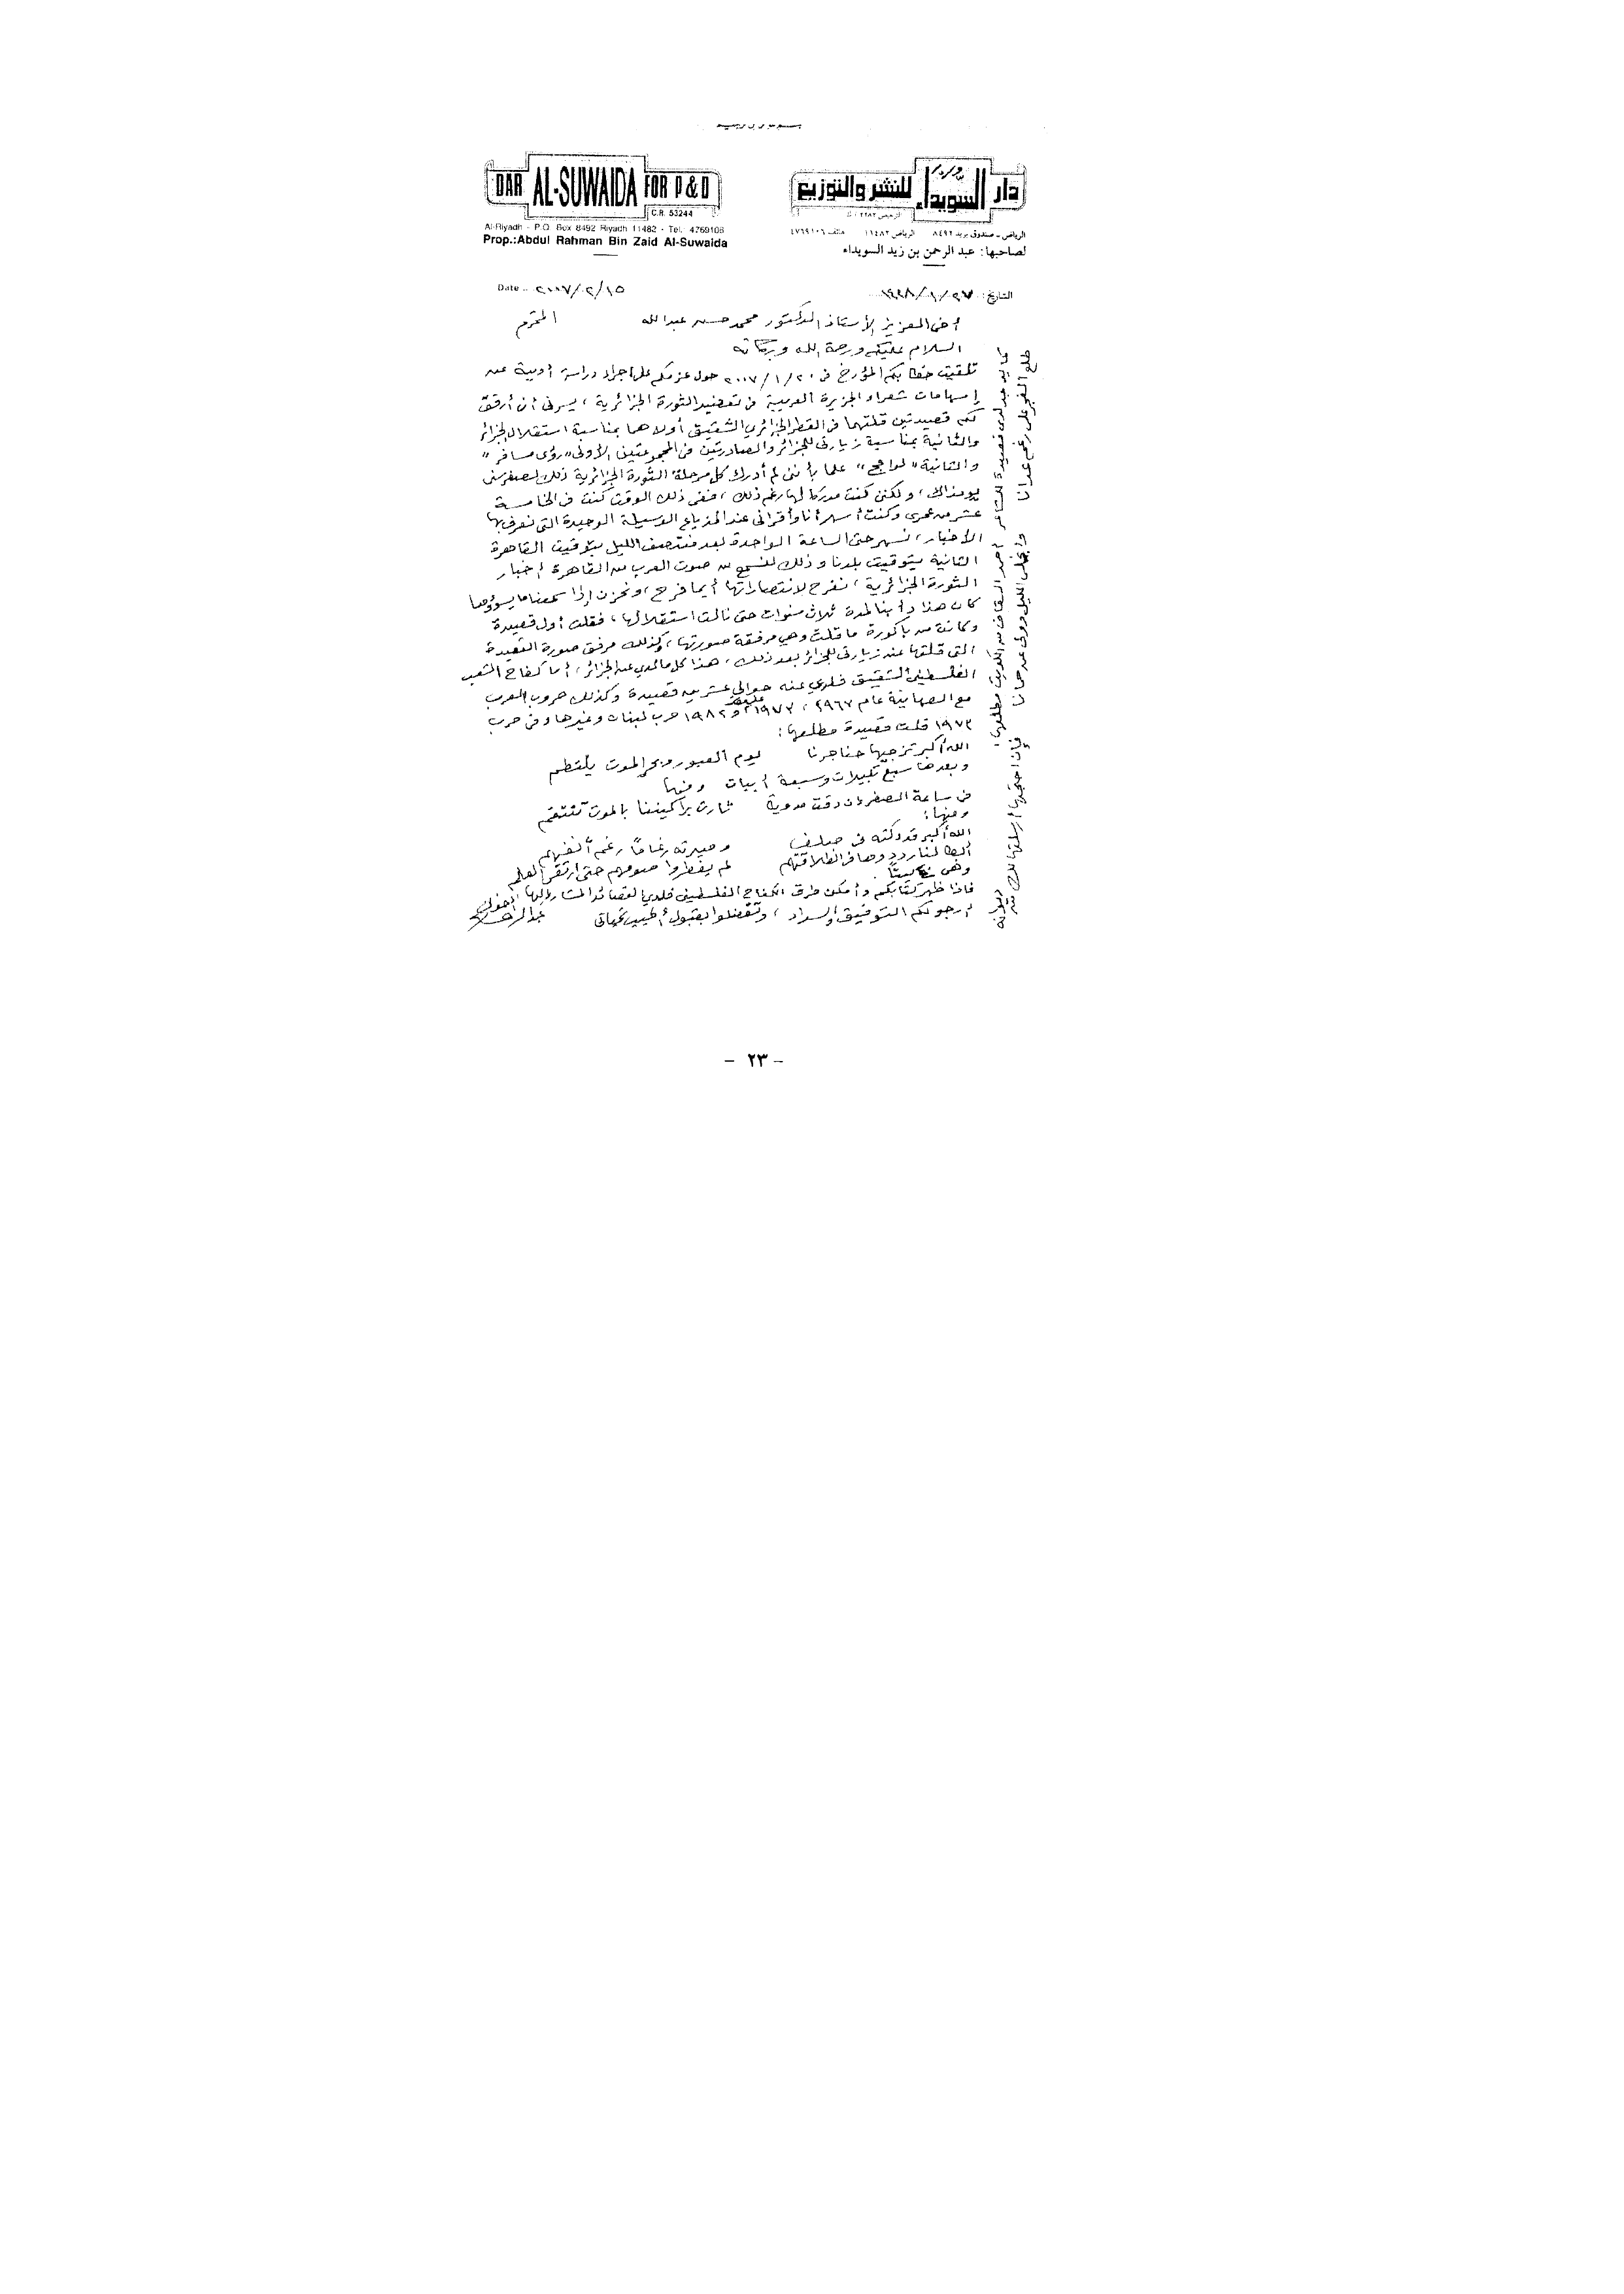 بسم الله الرحمن الرحيم
دار السويداء للنشر والتوزيع
الرياض - صندوق بريد ٨٤٩٢ الرياض ١١٤٨٢ هاتف ٤٧٦٩١٠٦
لصاحبها: عبد الرحمن بن زيد السويداء
DAR AL-SUWAIDA FOR P & D
C.R. 53244
Al-Riyadh - P.O. Box 8492 Riyadh 11482 - Tel. 4769106
Prop.:Abdul Rahman Bin Zaid Al-Suwaida
التاريخ: ١٤٢٨/١/٢٧
Date .. ٢٠٠٧/٢/١٥
أخي العزيز الأستاذ الدكتور محمد حسن عبدالله المحترم
السلام عليكم ورحمة الله وبركاته
تلقيت خطابكم المؤرخ في ٢٠٠٧/١/٢٠ حول عزمكم على إجراء دراسة أدبية عن
إسهامات شعراء الجزيرة العربية في تعضيد الثورة الجزائرية ، يسرني أن أرفق
لكم قصيدتين قلتهما في القطر الجزائري الشقيق أولاهما بمناسبة استقلال الجزائر
والثانية بمناسبة زيارتي للجزائر والصادرتين في المجموعتين الأولى "رؤى مسافر"
والثانية "لواعج" علما بأنني لم أدرك كل مرحلة الثورة الجزائرية ذلك لصغر سني
يومذاك ، ولكني كنت مدركا لها رغم ذلك ، ففي ذلك الوقت كنت في الخامسة
عشر من عمري وكنت أسهر أنا وأقراني عند المذياع الوسيلة الوحيدة التي نعرف بها
الأخبار ، نسهر حتى الساعة الواحدة بعد منتصف الليل بتوقيت القاهرة
الثانية بتوقيت بلدنا وذلك لنسمع من صوت العرب من القاهرة أخبار
الثورة الجزائرية ، نفرح لانتصاراتها أيما فرح ، ونحزن إذا سمعنا ما يسوؤها
كان هذا دأبنا لمدة ثلاث سنوات حتى نالت استقلالها ، فقلت أول قصيدة
وكانت من باكورة ما قلت وهي مرفقة صورتها ، وكذلك مرفق صورة القصيدة
التي قلتها عند زيارتي للجزائر بعد ذلك ، هذا كل ما لدي عن الجزائر ، أما كفاح الشعب
الفلسطيني الشقيق فلدي عنه حوالي عشرين قصيدة وكذلك حروب العرب
مع الصهاينة عام ١٩٦٧ ، ١٩٧٣ و ١٩٨٢ حرب لبنان وغيرها وفي حرب
١٩٧٣ قلت قصيدة مطلعها :
الله أكبر تزجيها حناجرنا يوم العبور وبحر الموت يلتطم
وبعدها سبع تكبيرات وسبعة أبيات ومنها
في ساعة الصفر إن دقت مدوية ثارت براكيننا بالموت تنتقم
ومنها :
الله أكبر قد دكته في صلف وصيرته رغاما رغم أنفهم
أبطالنا ردد وصافي انطلاقتهم لم يفطروا صومهم حتى ارتقى العلم
وهي بيتا.
فإذا ظهر كتابكم وأمكن طرق الكفاح الفلسطيني فلدي القصائد المشار إليها
أرجو لكم التوفيق والسداد ، وتفضلوا بقبول أطيب تحياتي
أخوكم
عبدالرحمن
كما يوجد لدي قصيدة للشاعر أحمد السقاف من الكويت مطلعها :
طلع الفجر على رغم عدانا وانجلى الليل وولى عن حمانا
فإن احتجتها أرسلتها لك
- ٢٣ -